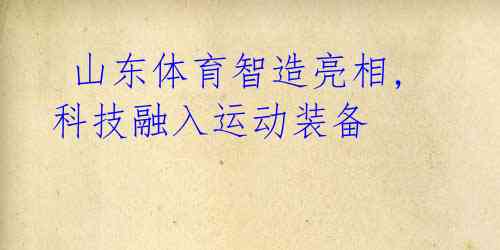 山东体育智造亮相,
科技融入运动装备